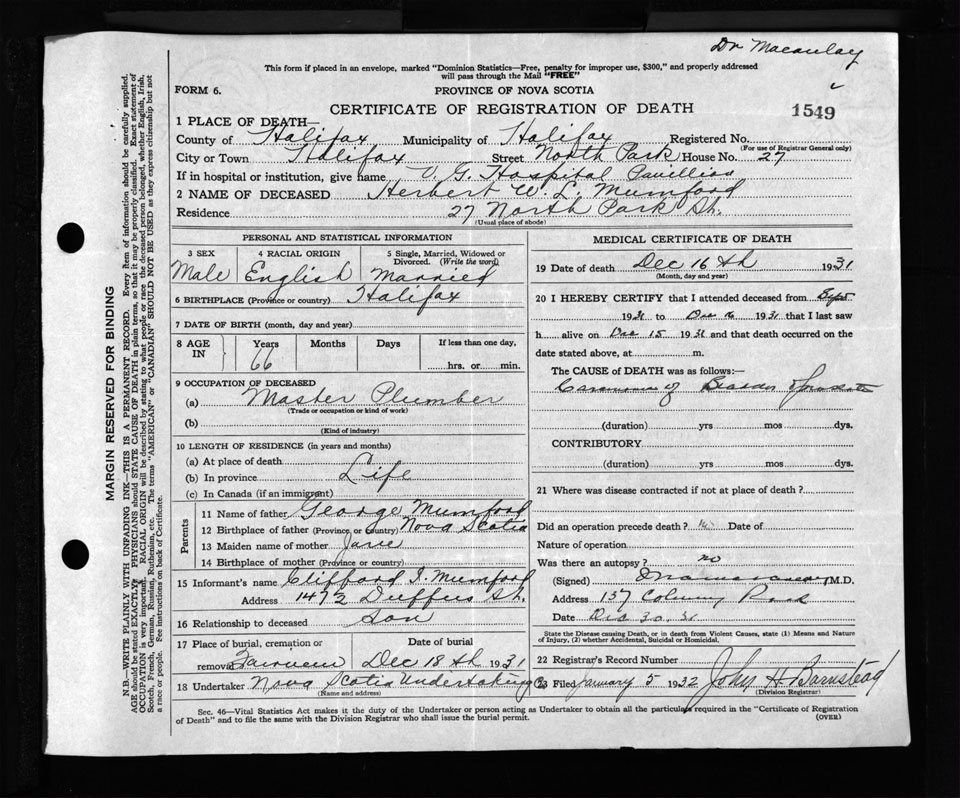 Dr Macaulay
This form if placed in an envelope, marked "Dominion Statistics—Free, penalty for improper use, $300," and properly addressed
will pass through the Mail "FREE"
FORM 6.
PROVINCE OF NOVA SCOTIA
CERTIFICATE OF REGISTRATION OF DEATH
1549
1 PLACE OF DEATH—
County of Halifax Municipality of Halifax Registered No.
(For use of Registrar General only)
City or Town Halifax Street North Park House No. 27
If in hospital or institution, give name V. G. Hospital Pavillion
2 NAME OF DECEASED Herbert W. L. Mumford
Residence 27 North Park St.
(Usual place of abode)
PERSONAL AND STATISTICAL INFORMATION
3 SEX 4 RACIAL ORIGIN 5 Single, Married, Widowed or Divorced. (Write the word)
Male English Married
6 BIRTHPLACE (Province or country) Halifax
7 DATE OF BIRTH (month, day and year)
8 AGE IN Years Months Days If less than one day,
66 hrs. or min.
9 OCCUPATION OF DECEASED
(a) Master Plumber
(Trade or occupation or kind of work)
(b)
(Kind of industry)
10 LENGTH OF RESIDENCE (in years and months)
(a) At place of death
(b) In province Life
(c) In Canada (if an immigrant)
Parents
11 Name of father George Mumford
12 Birthplace of father (Province or country) Nova Scotia
13 Maiden name of mother Jane
14 Birthplace of mother (Province or country)
15 Informant's name Clifford I. Mumford
Address 147½ Duffus St.
16 Relationship to deceased Son
17 Place of burial, cremation or removal Fairview Date of burial Dec 18th 1931
18 Undertaker Nova Scotia Undertaking Co
(Name and address)
MEDICAL CERTIFICATE OF DEATH
19 Date of death Dec 16th 1931
(Month, day and year)
20 I HEREBY CERTIFY that I attended deceased from Sept
1931 to Dec 16 1931 that I last saw
h alive on Dec 15 1931 and that death occurred on the
date stated above, at m.
The CAUSE of DEATH was as follows:—
of Bladder
(duration) yrs mos dys.
CONTRIBUTORY
(duration) yrs mos dys.
21 Where was disease contracted if not at place of death?
Did an operation precede death? Date of
Nature of operation
Was there an autopsy? no
(Signed) M.D.
Address 157 Park
Date Dec 30. 31
State the Disease causing Death, or in death from Violent Causes, state (1) Means and Nature
of Injury, (2) whether Accidental, Suicidal or Homicidal.
22 Registrar's Record Number
23 Filed January 5 1932 John H Barnstead
(Division Registrar)
Sec. 46—Vital Statistics Act makes it the duty of the Undertaker or person acting as Undertaker to obtain all the particulars required in the "Certificate of Registration
of Death" and to file the same with the Division Registrar who shall issue the burial permit.
(OVER)
MARGIN RESERVED FOR BINDING
N.B.—WRITE PLAINLY WITH UNFADING INK—THIS IS A PERMANENT RECORD. Every item of information should be carefully supplied.
AGE should be stated EXACTLY. PHYSICIANS should STATE CAUSE OF DEATH in plain terms, so that it may be properly classified. Exact statement of
OCCUPATION is very important. RACIAL ORIGIN will be described by stating to what people or race the deceased person belonged, whether English, Irish,
Scotch, French, German, Russian, Ruthenian, etc. The terms "AMERICAN" or "CANADIAN" SHOULD NOT BE USED as they express citizenship but not
a race or people. See instructions on back of Certificate.